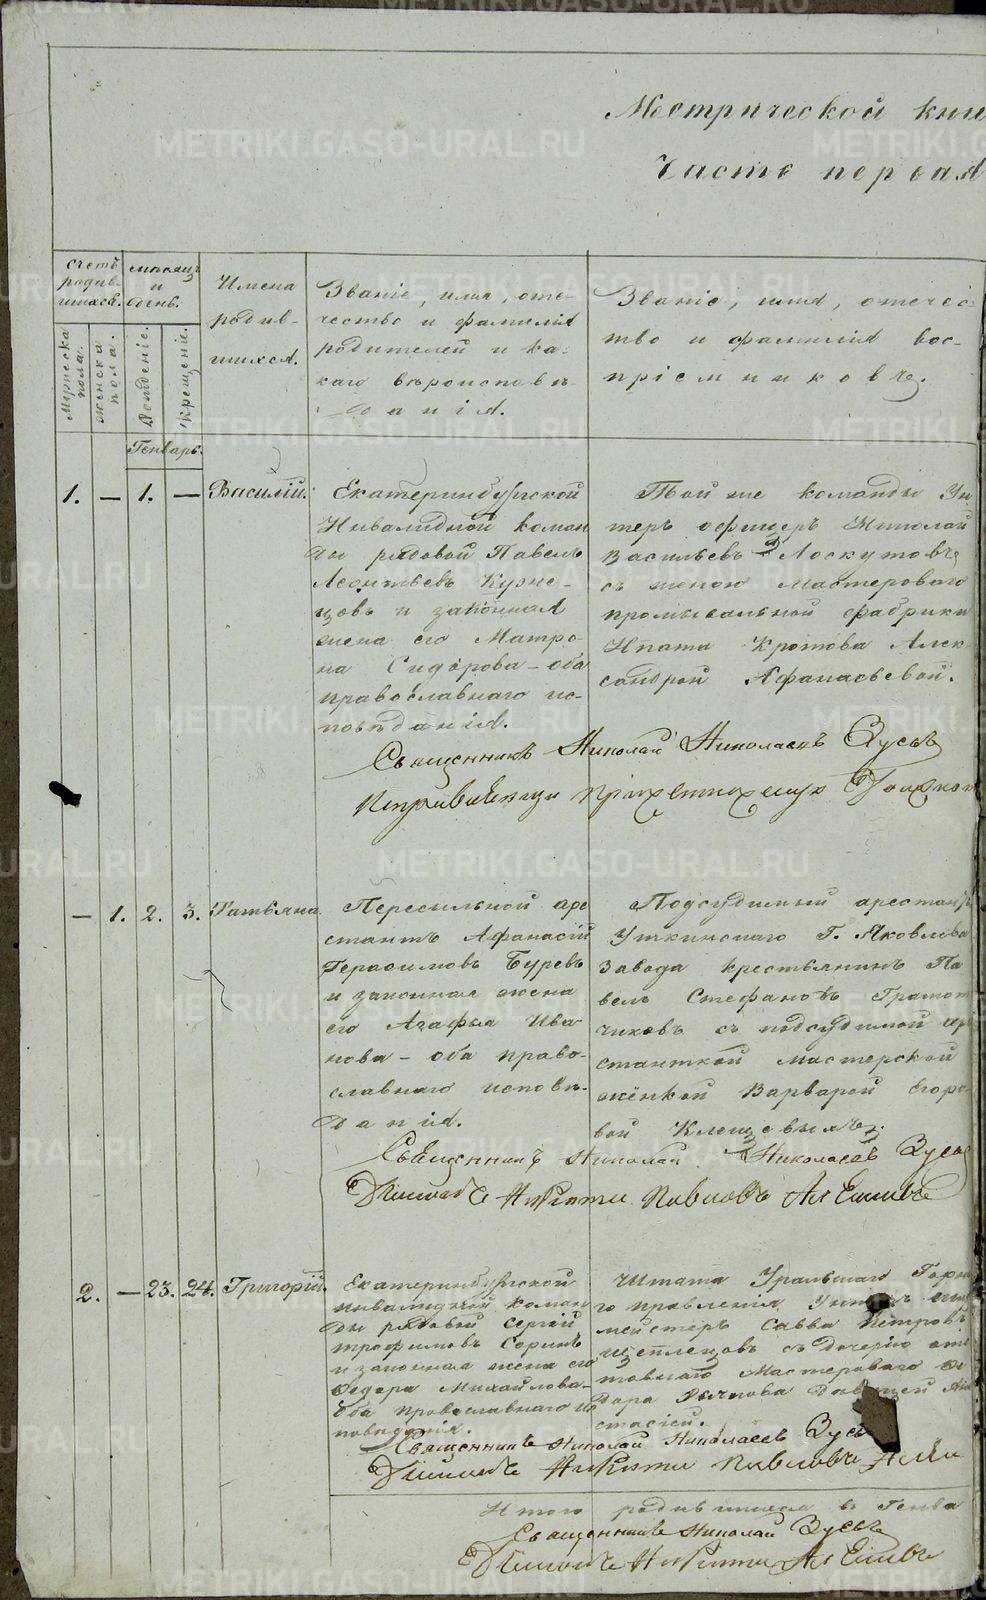 Метрической кни
Часть первая
счетъ родив-шихся.
мѣсяцъ и день.
Имена родив-шихся.
Званіе, имя, оте-
чество и фамилія
родителей и ка-
каго вѣроисповѣ-
данія.
Званіе, имя, отечес-
тво и фамилія вос-
пріемниковъ.
Мужеска пола.
Женска пола.
Рожденіе.
Крещеніе.
Генварь.
1. — 1. — Василій.
Екатеринбургской
Инвалидной коман
ды рядовой Павелъ
Леонтьевъ Кузне-
цовъ и законная
жена его Матро-
на Сидорова – оба
православнаго ис-
повѣданія.
Той же команды Ун
теръ офицеръ Николай
Васильевъ Лоскутовъ
съ женою мастероваго
промывальной фабрики
Ипата Кротова Алек
сандрой Афанасьевой.
Священникъ Николай Николаевъ Зуевъ
— 1. 2. 3. Татьяна.
Пересыльной аре
стантъ Афанасій
Герасимовъ Буревъ
и законная жена
его Агафья Ива-
нова – оба право-
славнаго исповѣ-
данія.
Подсудимый арестантъ
Уткинскаго Г. Яковлева
Завода крестьянинъ Па
велъ Стефановъ Грамот
чиковъ съ подсудимой ар
станткой мастерской
жёнкой Варварой Егоро
вой Клещевыхъ.
Священникъ Николай Николаевъ Зуевъ
Дьячокъ Никита Павловъ
2. — 23. 24. Григорій.
Екатеринбургской
инвалидной коман
ды рядовой Сергій
Трофимовъ
и законная жена его
Ѳедора Михайлова
оба православнаго ис
повѣданія.
Штата Уральскаго Горна
го правленія,
мейстеръ Савва Петровъ
съ дочерію отс
тавнаго Мастероваго Ѳе
дора
стасіей.
Священникъ Николай Николаевъ Зуе
Никита Павловъ
Итого родившихся въ Генва
Священникъ Николай Зуевъ
Никита
METRIKI.GASO-URAL.RU